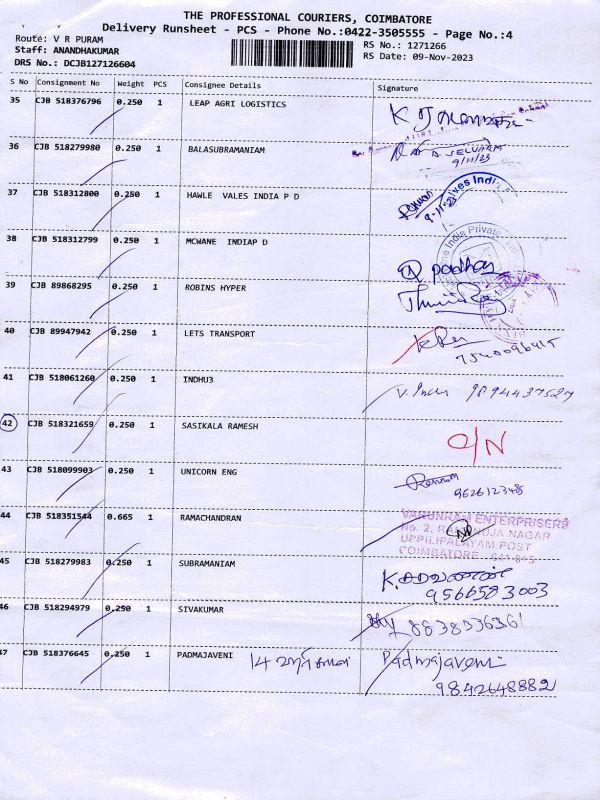 THE PROFESSIONAL COURIERS, COIMBATORE
Delivery Runsheet - PCS - Phone No.:0422-3505555 - Page No.:4
Route: V R PURAM
RS No.: 1271266
Staff: ANANDHAKUMAR
RS Date: 09-Nov-2023
DRS No.: DCJB127126604
S No Consignment No Weight PCS Consignee Details Signature
35 CJB 518376796 0.250 1 LEAP AGRI LOGISTICS
36 CJB 518279980 0.250 1 BALASUBRAMANIAM
9/11/23
37 CJB 518312800 0.250 1 HAWLE VALES INDIA P D
38 CJB 518312799 0.250 1 MCWANE INDIAP D
39 CJB 89868295 0.250 1 ROBINS HYPER
40 CJB 89947942 0.250 1 LETS TRANSPORT
41 CJB 518061260 0.250 1 INDHU3 9894437527
42 CJB 518321659 0.250 1 SASIKALA RAMESH O/N
43 CJB 518099903 0.250 1 UNICORN ENG
9626123485
44 CJB 518351544 0.665 1 RAMACHANDRAN
VARUNRAM ENTERPRISES
UPPILIPALAYAM POST
COIMBATORE
45 CJB 518279983 0.250 1 SUBRAMANIAM
9566583003
46 CJB 518294979 0.250 1 SIVAKUMAR 8838336361
47 CJB 518376645 0.250 1 PADMAJAVENI Padmajaveni
9842648882